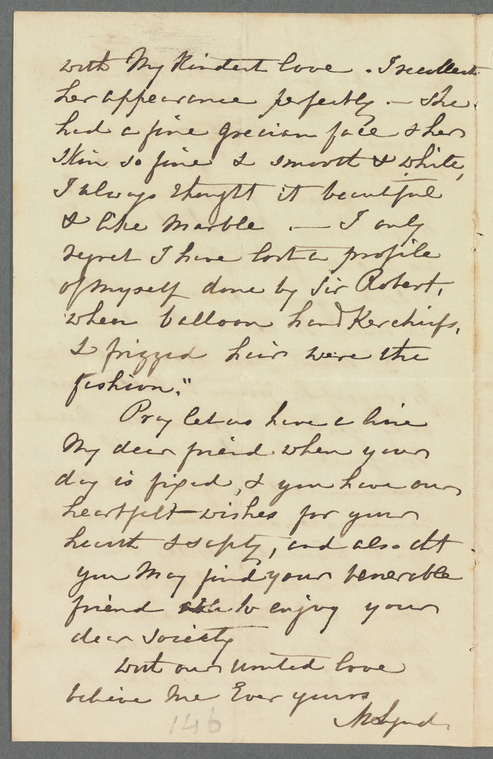 with My Kindest love . I recollect
her appearance perfectly . — She
had a fine Grecian face & her
Skin so fine & smooth & white,
I always thought it beautiful
& like Marble . — I only
regret I have lost a profile
of myself done by Sir Robert,
when balloon handKerchiefs,
& frizzed hair were the
fashion."
Pray let us have a line
My dear friend when your
day is fixed, & you have our
heartfelt wishes for your
health & safety, and also tht
you May find your venerable
friend able to enjoy your
dear society
With our united love
believe Me Ever yours
M Lynd.
146